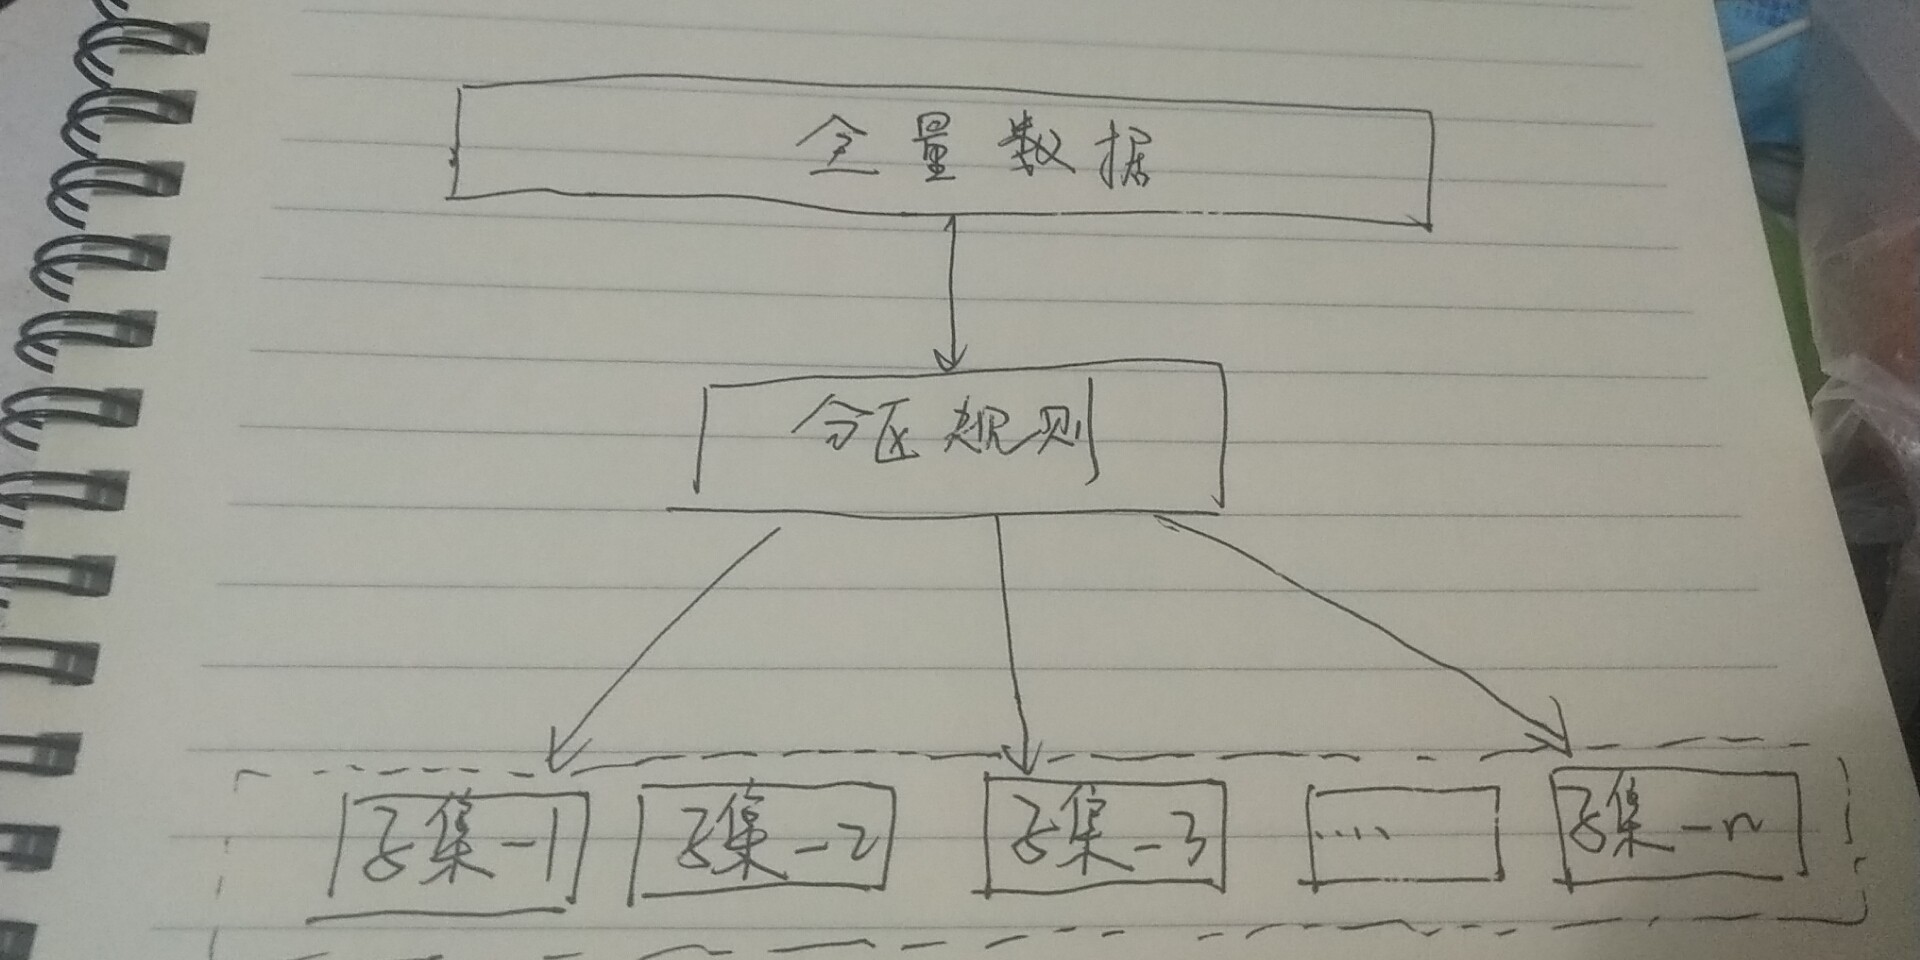 全量数据
分区规则
子集-1 子集-2 子集-3 .... 子集-n